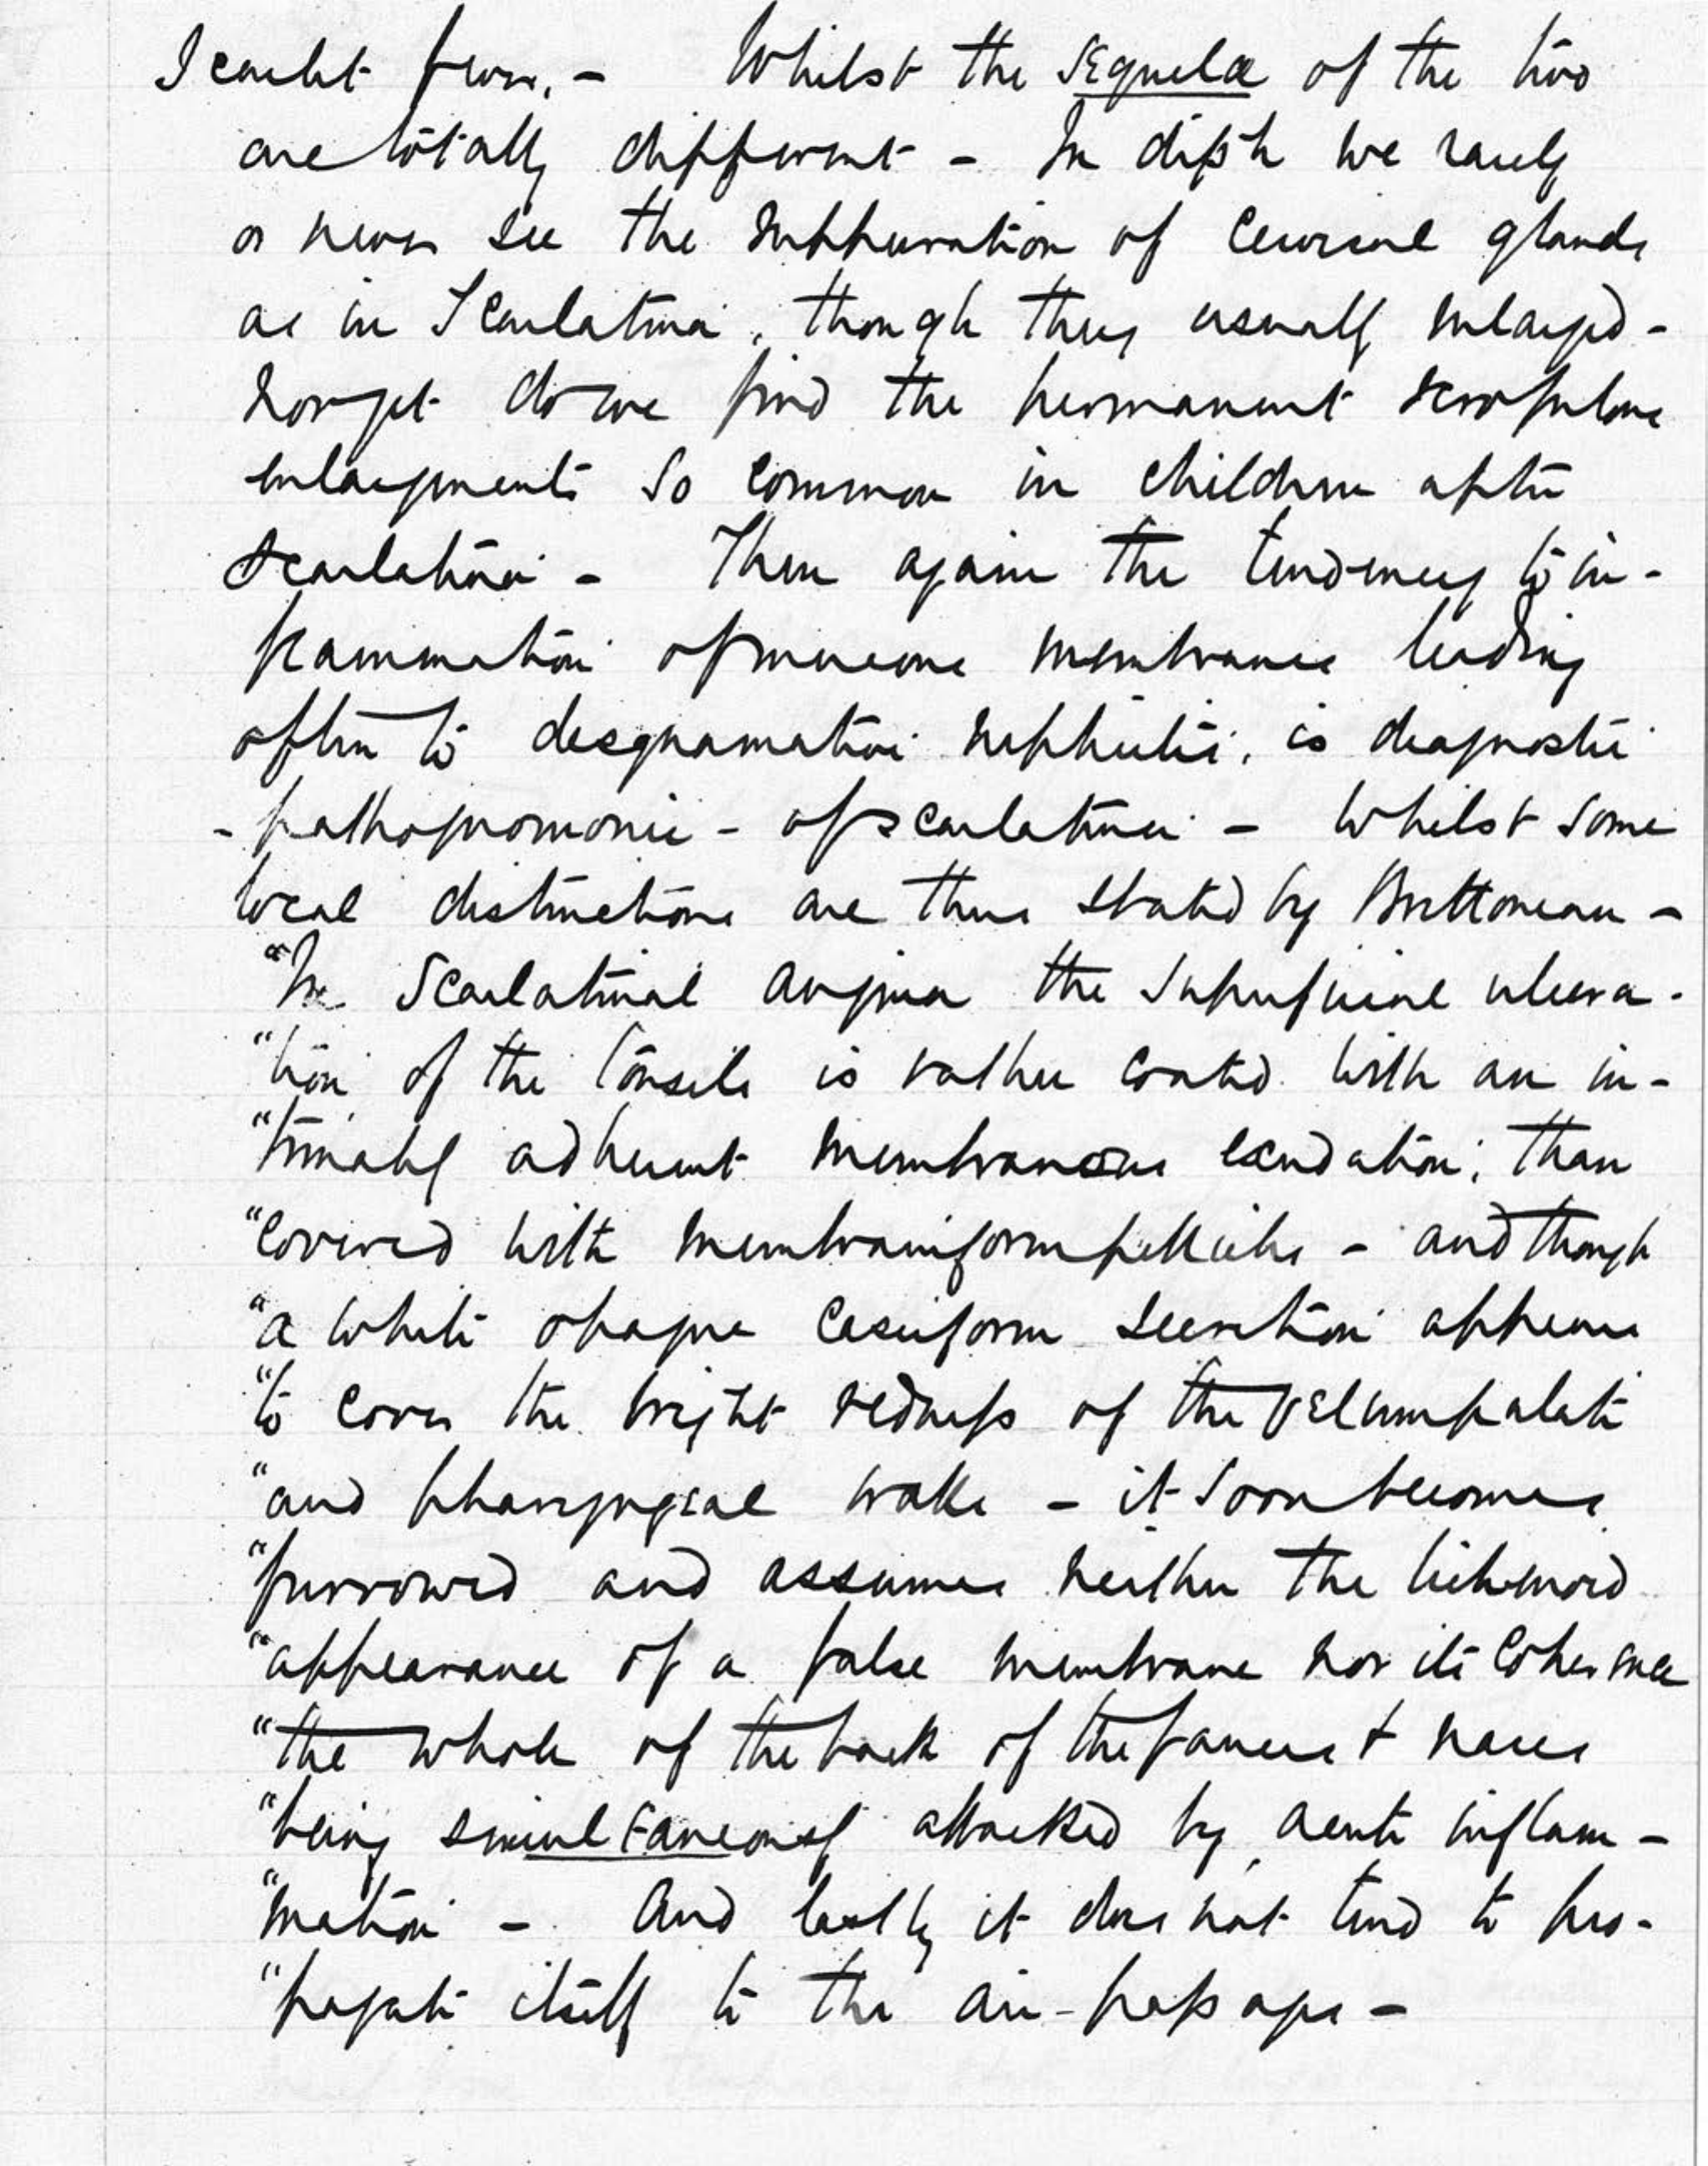 Scarlet fever. - Whilst the sequelæ of the two
are totally different - In diph we rarely
or never see the suppuration of cervical glands
as in Scarlatina, though they usually enlarged -
nor yet do we find the permanent scrofulous
enlargements so common in children after
Scarlatina - Then again the tendency to in-
flammation of mucous membranes leading
often to desquamation nephritis, is diagnostic
- pathognomonic - of scarlatina - Whilst some
local distinctions are thus stated by Brettoneau -
"In Scarlatinal angina the superficial ulcera-
"tion of the tonsils is rather coated with an in-
"timately adherent membranous exudation; than
"covered with membraniform pellicles - and though
"a white opaque caseiform secretion appears
"to cover the bright redness of the velum palati
"and pharyngeal walls - it soon becomes
"furrowed and assumes neither the lichenoid
"appearance of a false membrane nor its coherence
"the whole of the back of the fauces & nares
"being simultaneously attacked by acute inflam-
"mation - And lastly it does not tend to pro-
"pagate itself to the air-passages -